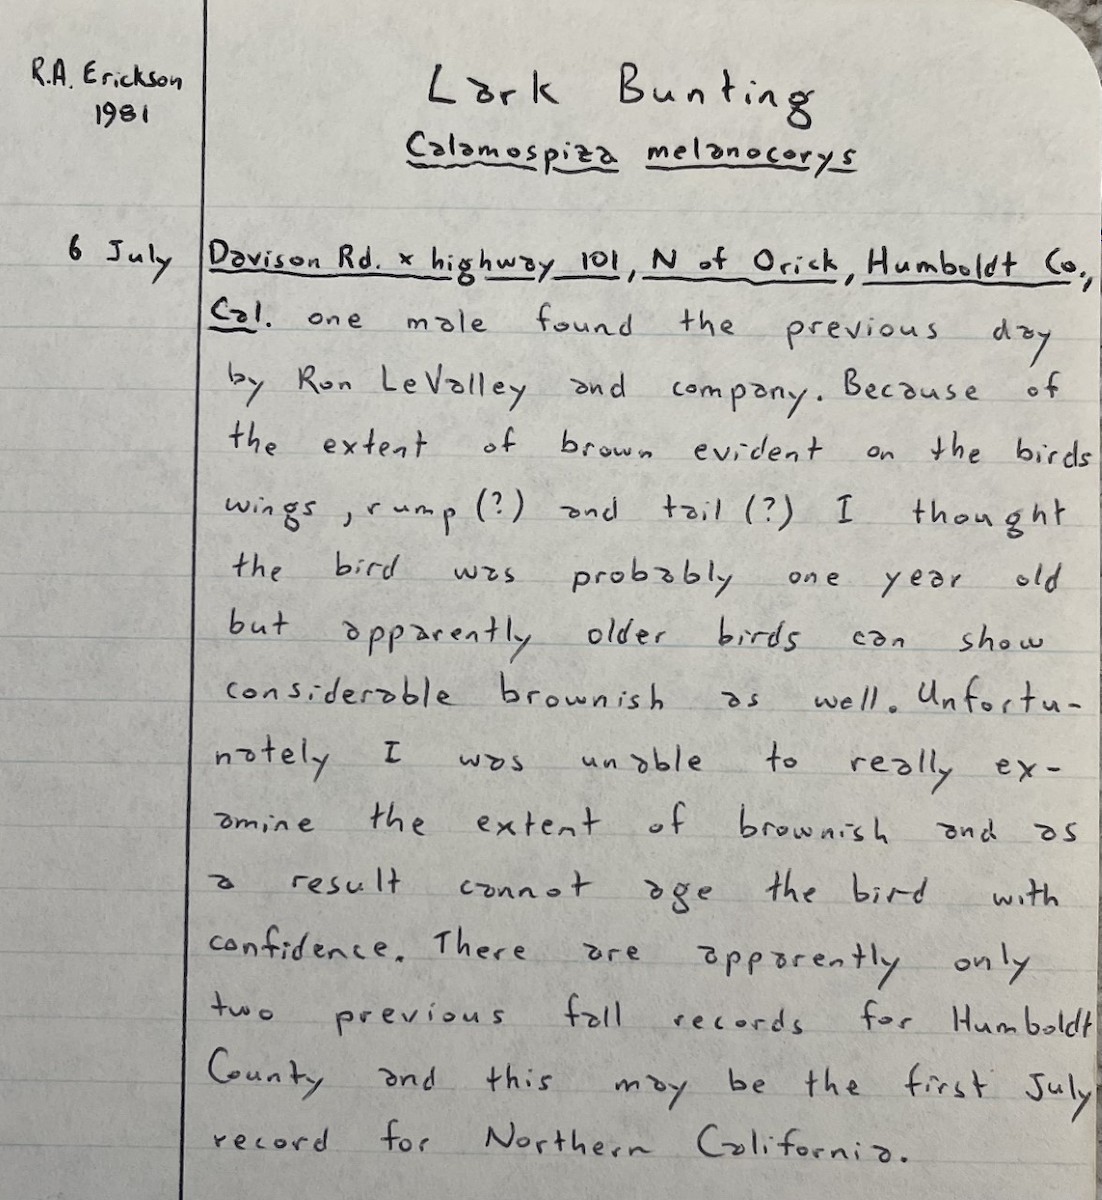 R.A. Erickson
1981
Lark Bunting
Calamospiza melanocorys
6 July Davison Rd. x highway 101, N of Orick, Humboldt Co.,
Cal. one male found the previous day
by Ron LeValley and company. Because of
the extent of brown evident on the birds
wings, rump (?) and tail (?) I thought
the bird was probably one year old
but apparently older birds can show
considerable brownish as well. Unfortu-
nately I was unable to really ex-
amine the extent of brownish and as
a result cannot age the bird with
confidence. There are apparently only
two previous fall records for Humboldt
County and this may be the first July
record for Northern California.